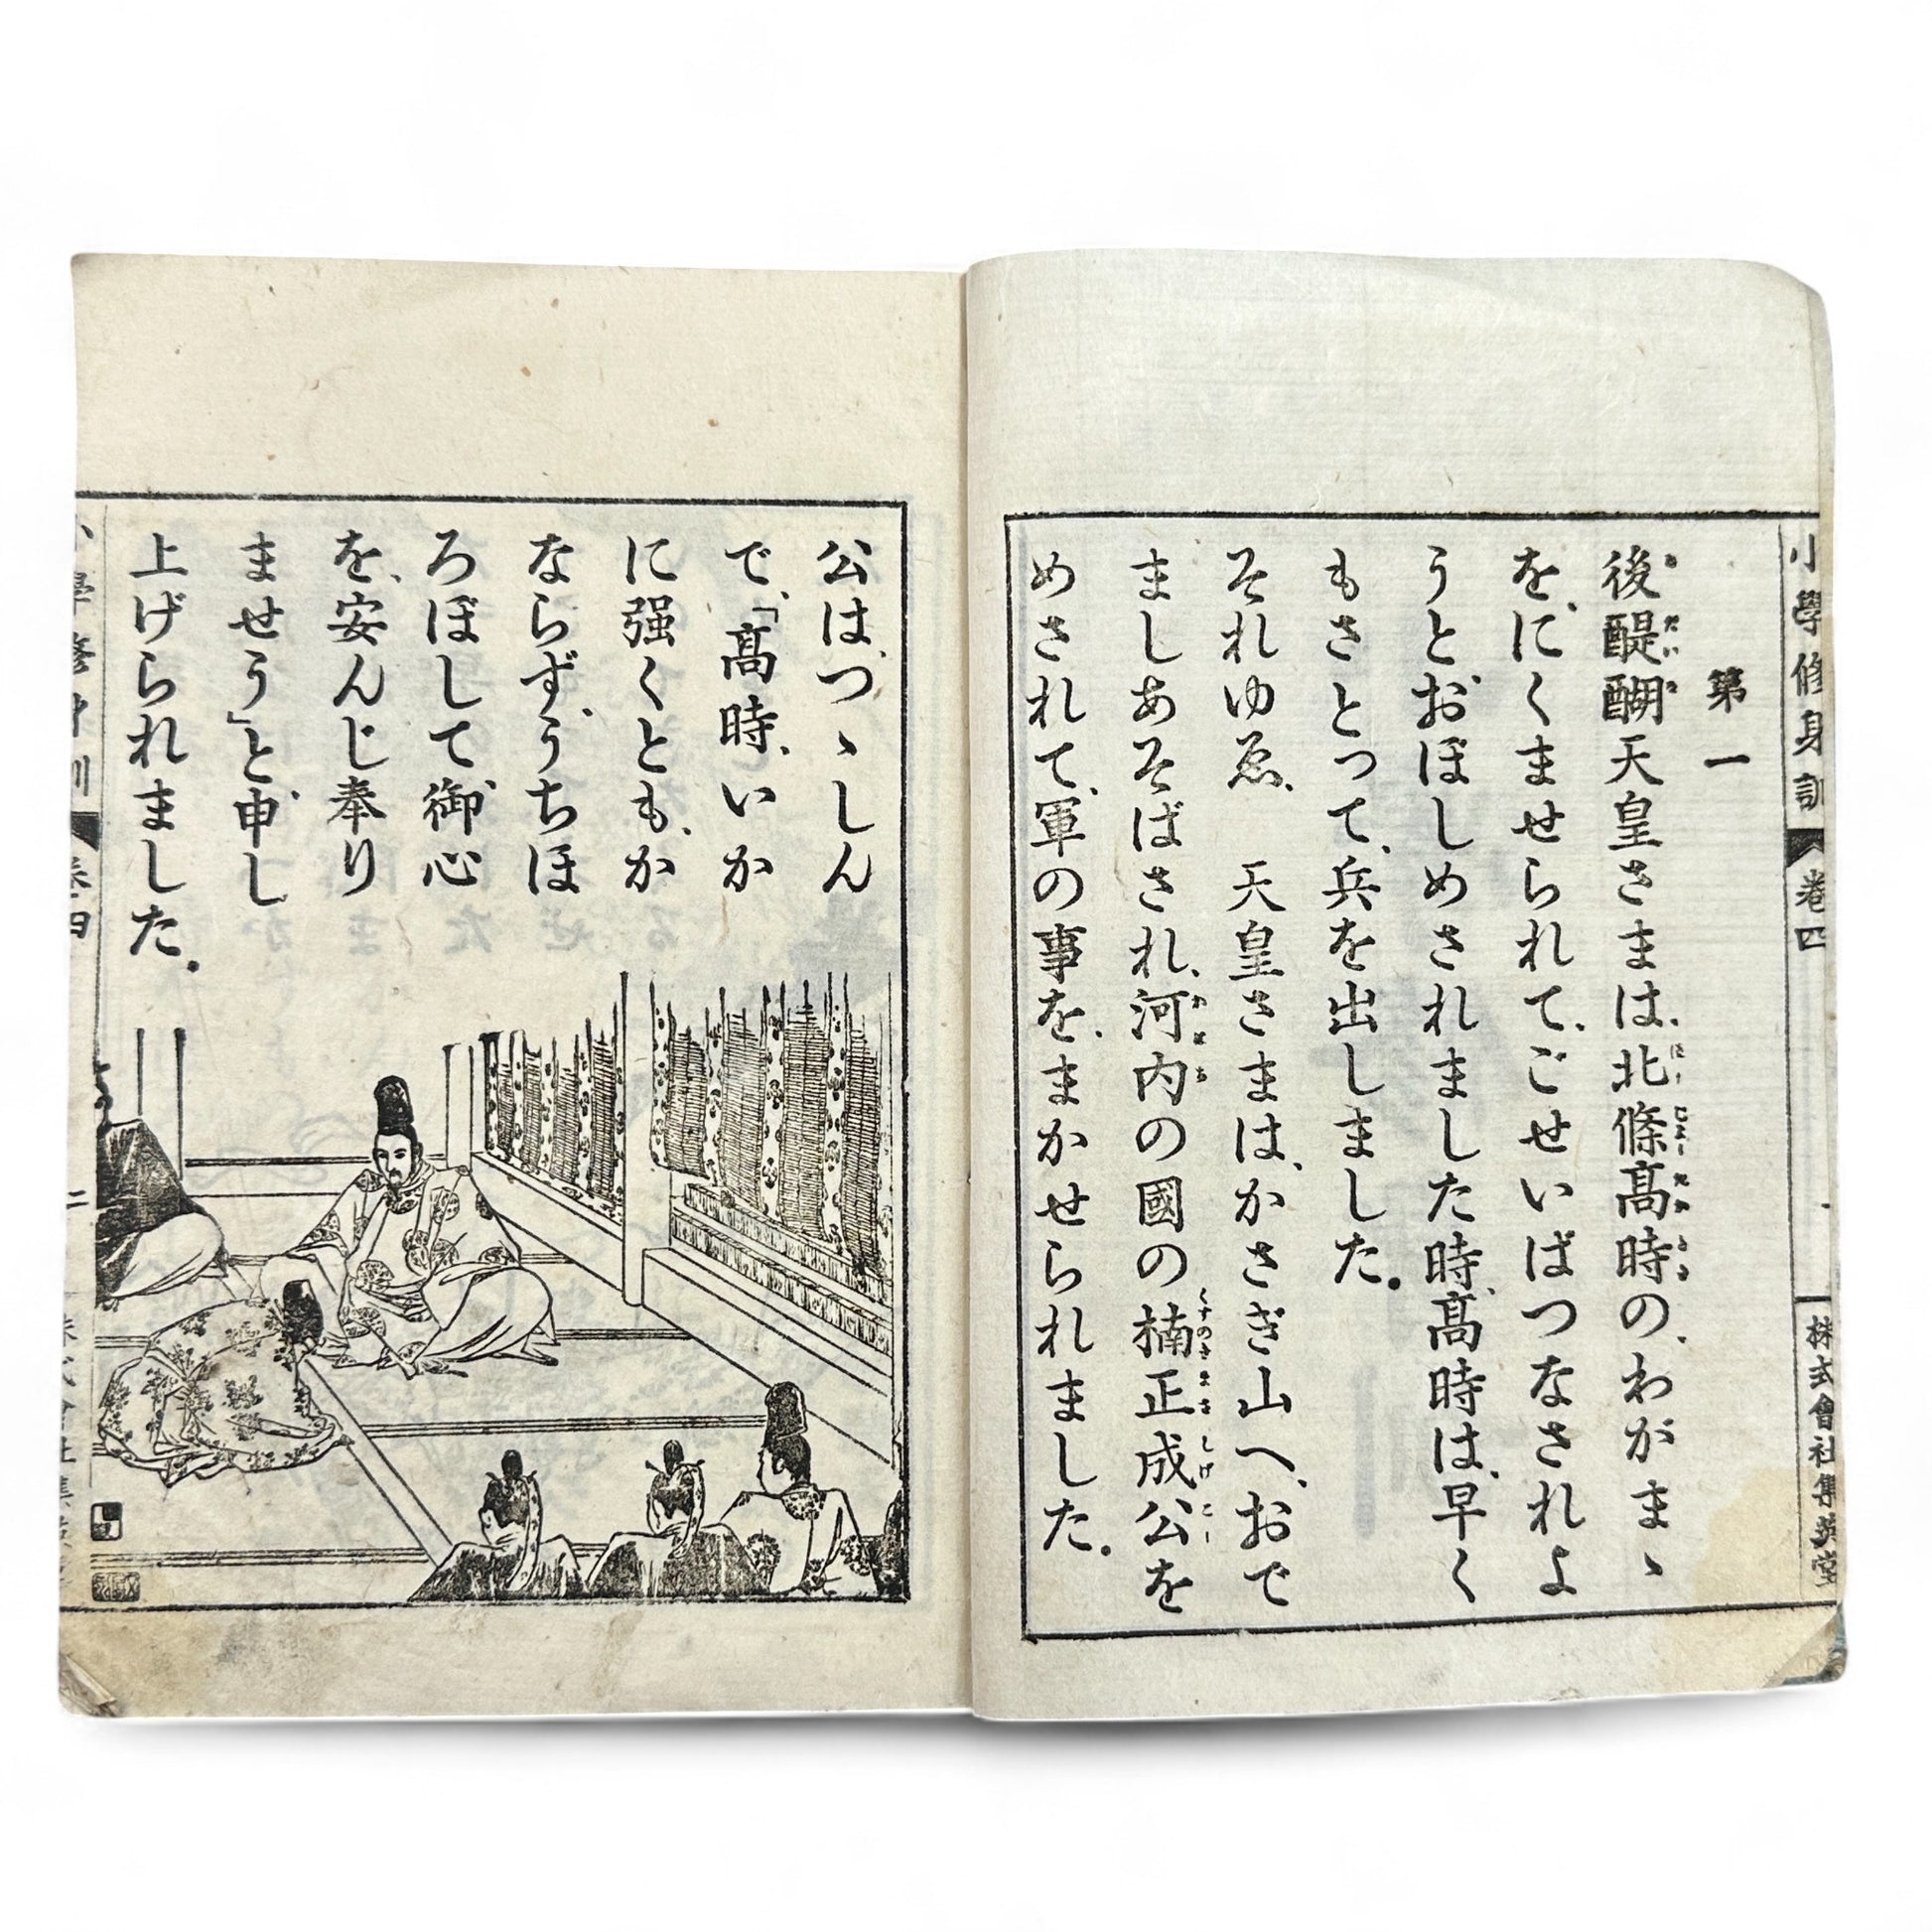 小學修身訓 卷四 株式會社集英堂
第一
後醍醐天皇さまは、北條高時の、わがまゝ
を、にくませられて、ごせいばつなされよ
うと、おぼしめされました時、高時は、早く
もさとつて、兵を出しました。
それゆゑ、天皇さまは、かさぎ山へ、おで
ましあそばされ、河内の國の楠正成公を
めされて、軍の事を、まかせられました。
公は、つゝしん
で、「高時、いか
に強くとも、か
ならず、うちほ
ろぼして、御心
を、安んじ奉り
ませう」と、申し
上げられました。
二